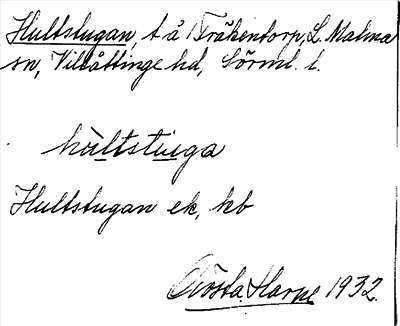 Hultstugan, t å Träkentorp, L. Malma
sn, Villåttinge hd, Sörml. l.
hùltstuga
Hultstugan ek, kb
Gösta Harpe 1932.